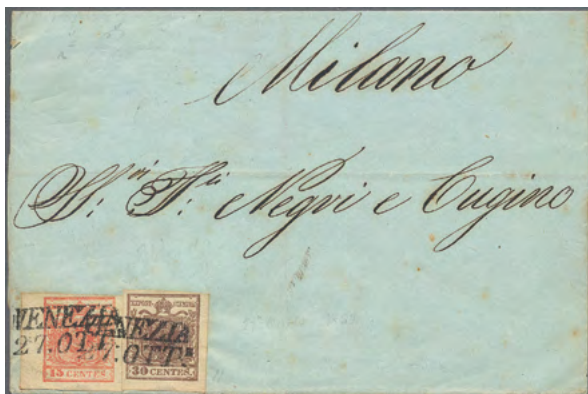 Milano
S.ri F.lli Negri e Cugino
VENEZIA
27. OTT.
VENEZIA
27. OTT.
15 CENTES.
30 CENTES.